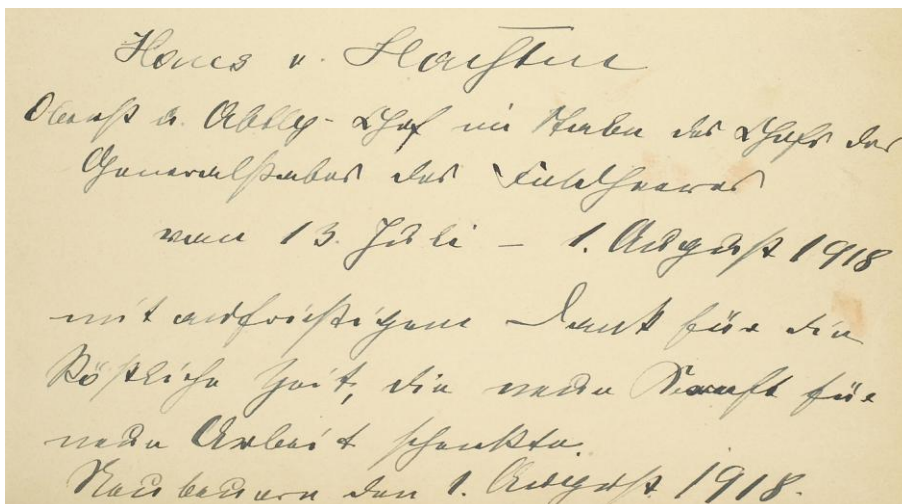 Hans v. Haeften
Oberst u. Abtlg-Chef im Stabe des Chefs des
Generalstabes des Feldheeres
vom 13. Juli – 1. August 1918
mit aufrichtigem Dank für die
köstliche Zeit, die neue Kraft für
neue Arbeit schenkte.
Neubeuern den 1. August 1918.